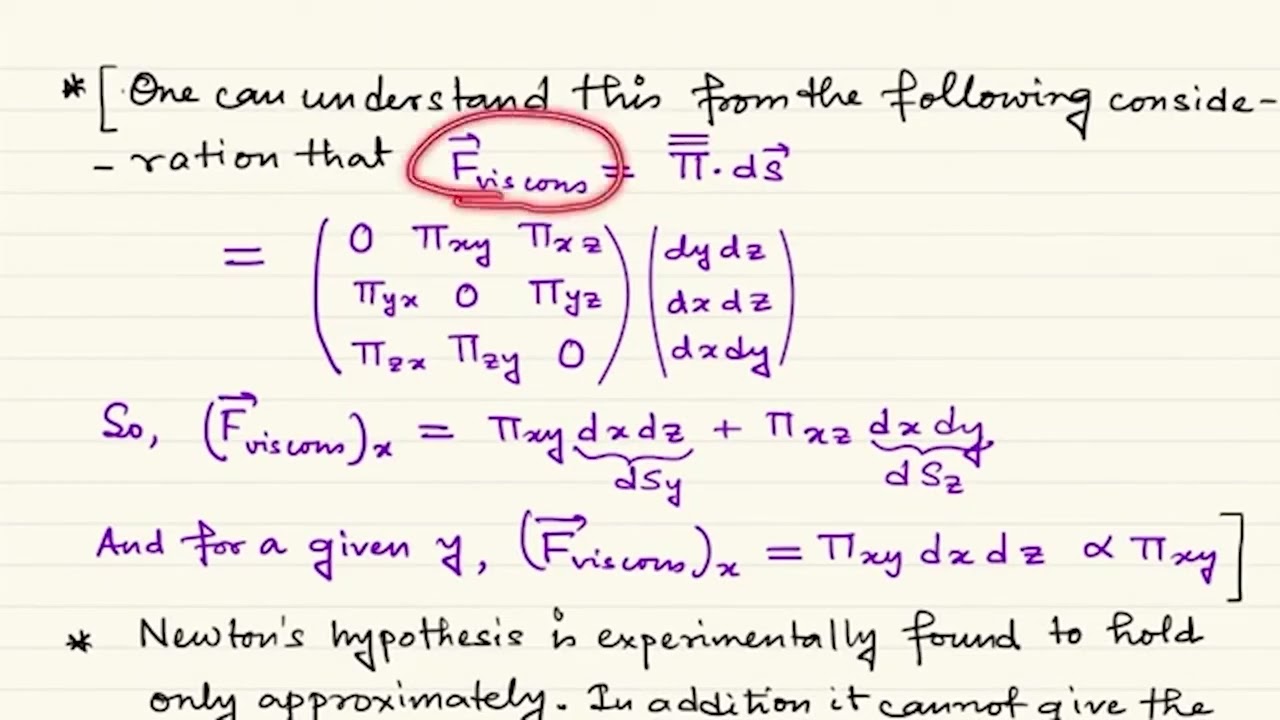 * [One can understand this from the following conside-
- ration that F⃗viscous = Π̿ · dS⃗
= ( 0 Πxy Πxz ) ( dy dz )
( Πyx 0 Πyz ) ( dx dz )
( Πzx Πzy 0 ) ( dx dy )
So, (F⃗viscous)x = Πxy dx dz + Πxz dx dy
dSy dSz
And for a given y, (F⃗viscous)x = Πxy dx dz ∝ Πxy ]
* Newton's hypothesis is experimentally found to hold
only approximately. In addition it cannot give the